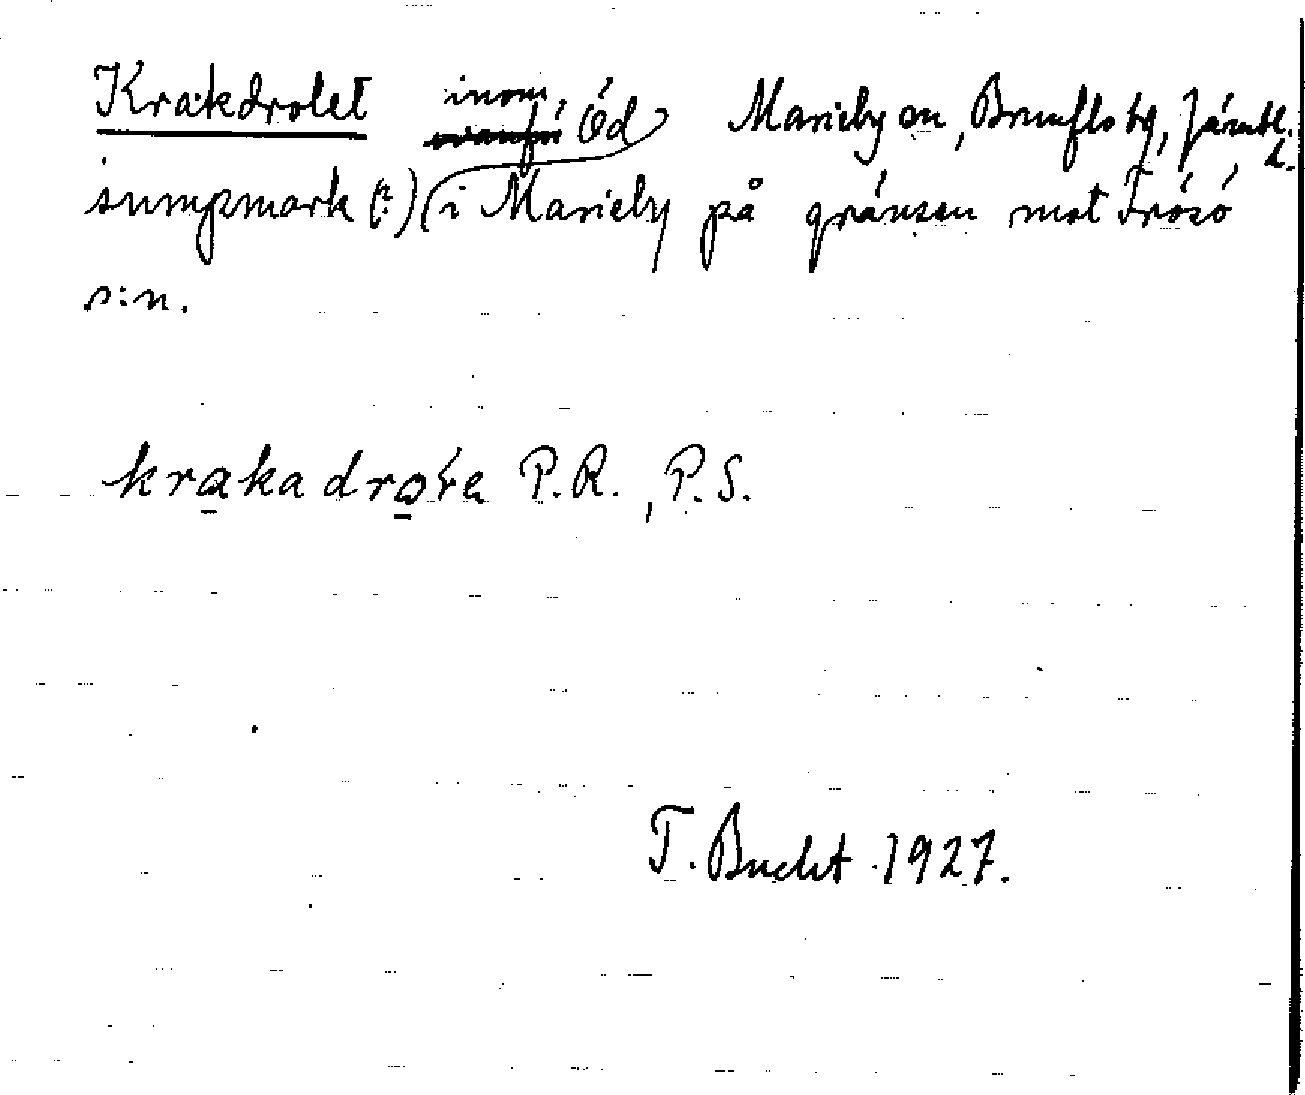 Krakdrolet inom Öd Marieby sn, Brunflo tg, Jämtl. l.
sumpmark (?) i Marieby på gränsen mot Frösö
s:n.
krakadroła P.R., P.S.
T. Bucht 1927.